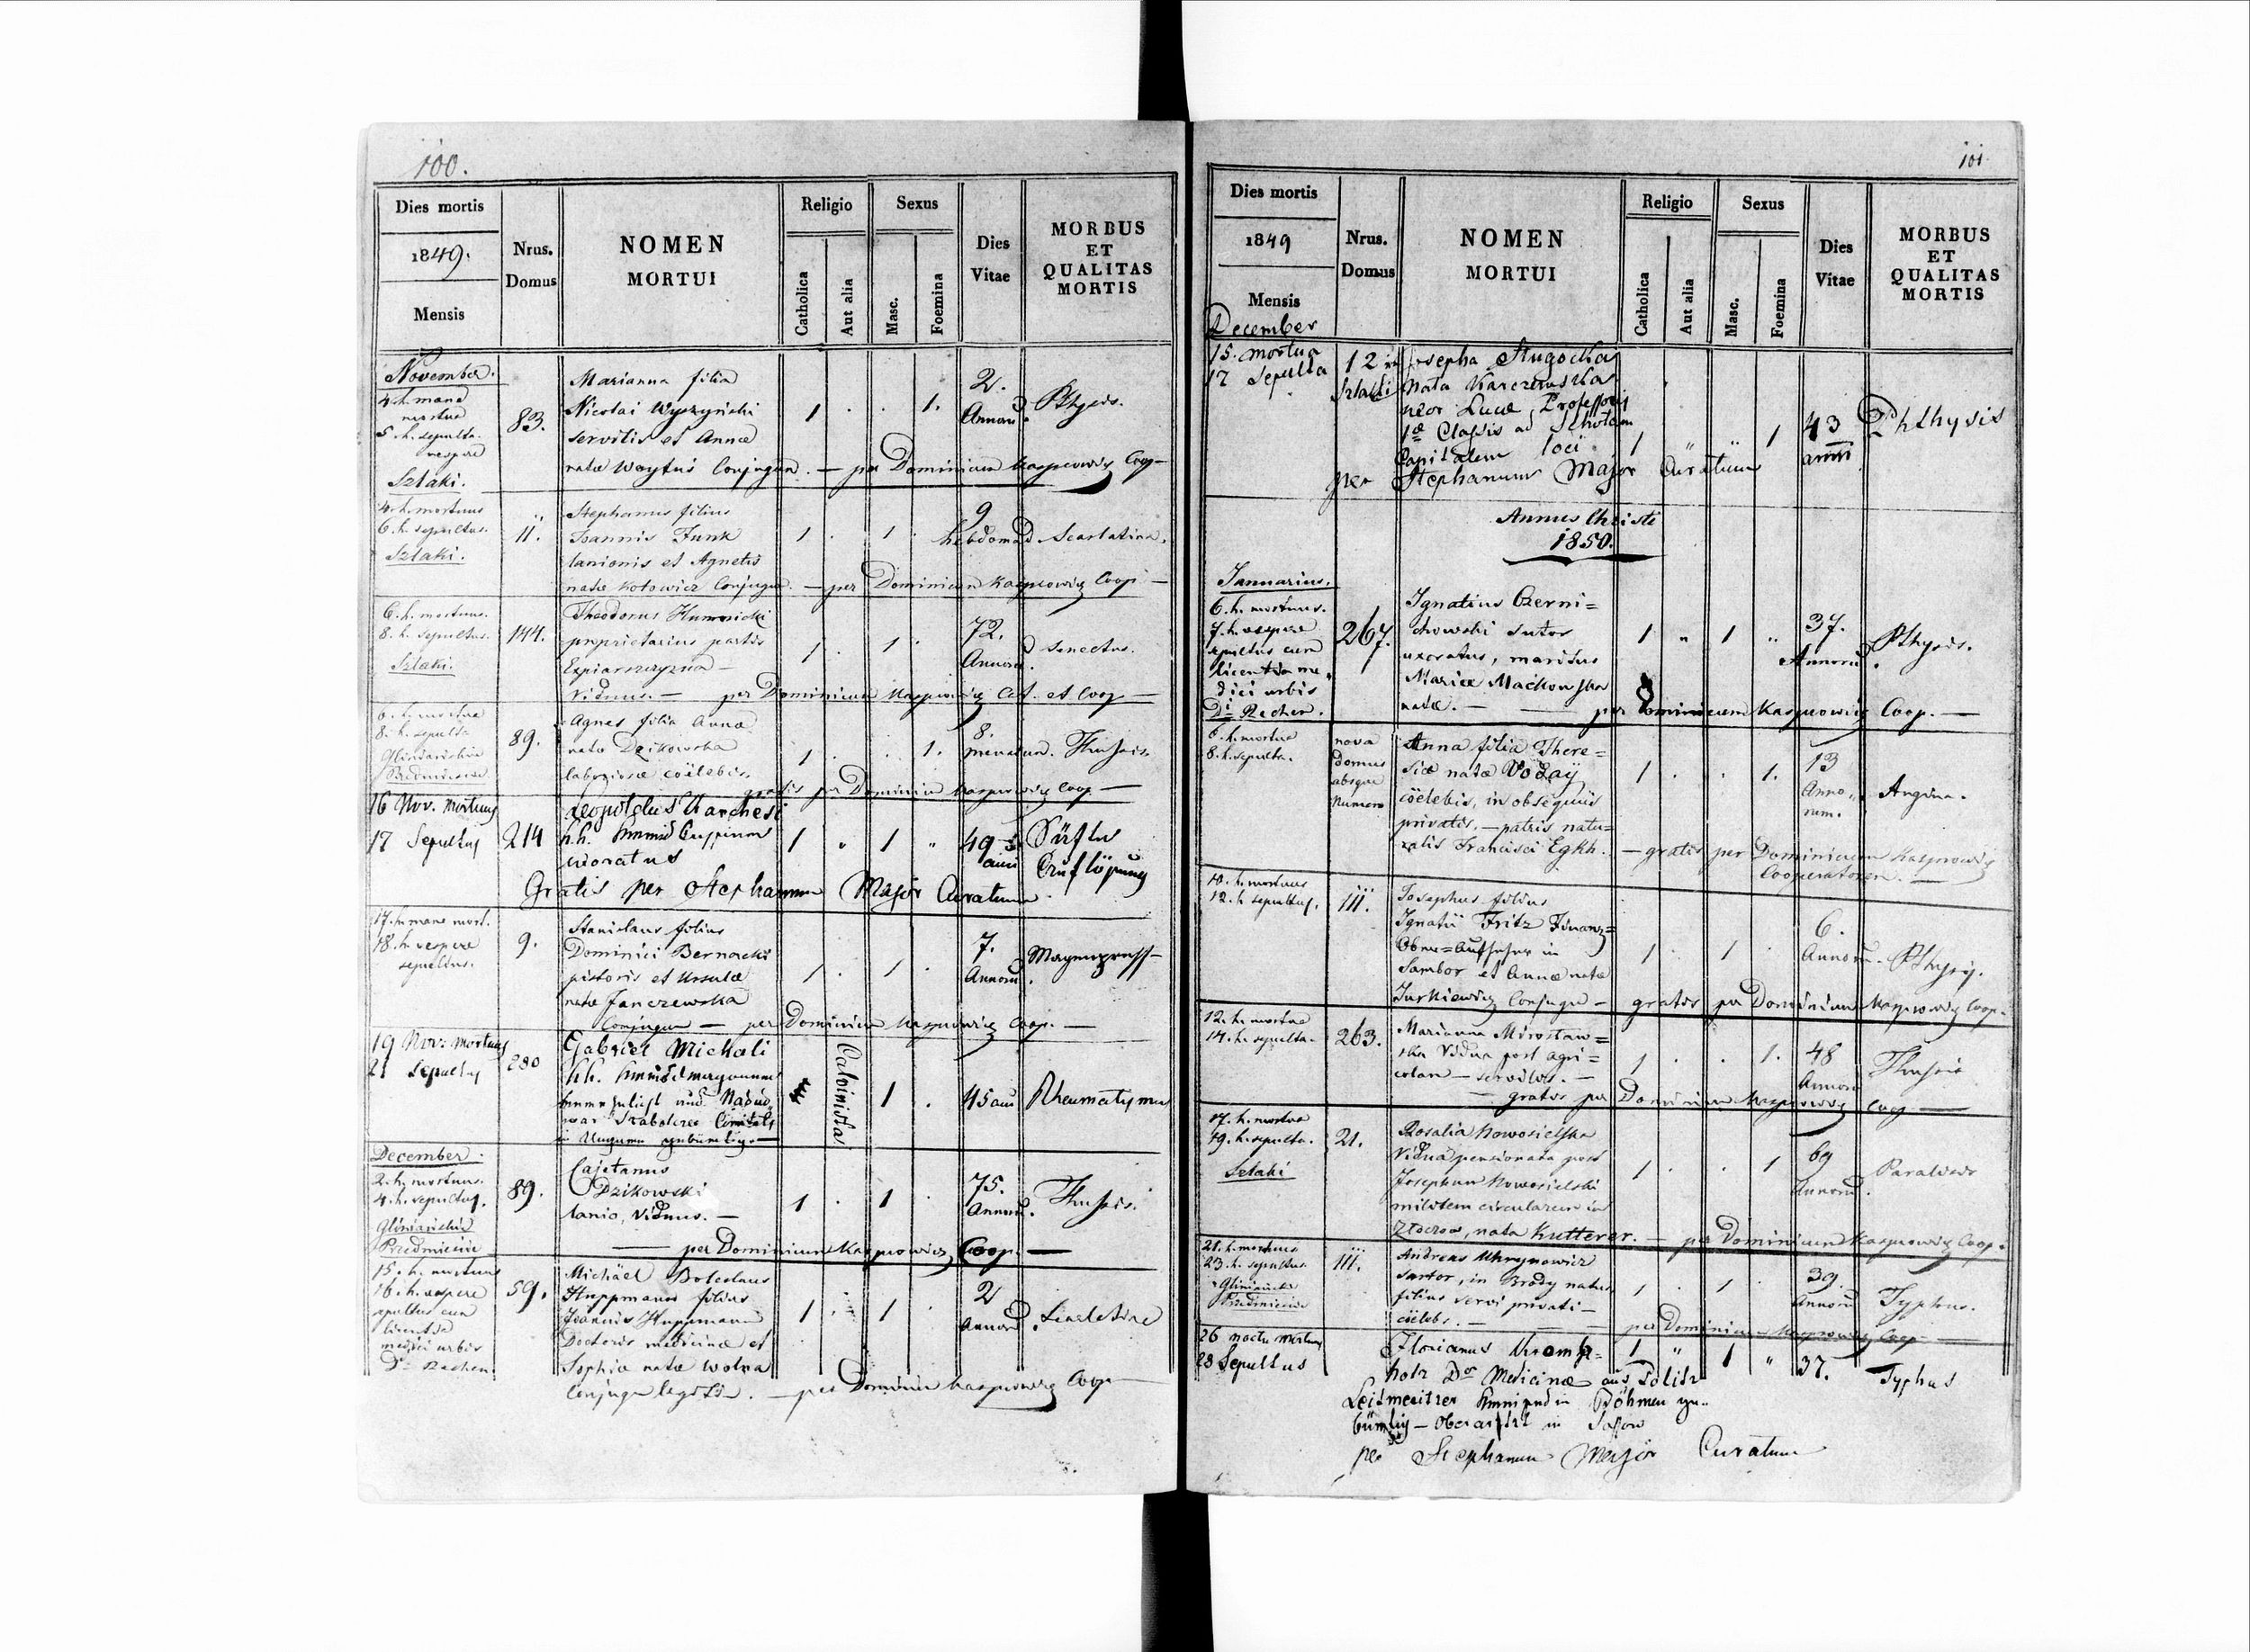 100.
Dies mortis
1849.
Mensis
Nrus.
Domus
NOMEN
MORTUI
Religio
Catholica
Aut alia
Sexus
Masc.
Foemina
Dies
Vitae
MORBUS
ET
QUALITAS
MORTIS
November.
4. h. mane
mortua
5. h. sepulta
vespere
Sztaki.
83.
Marianna filia
Nicolai Wyszyński
servilis et Annæ
natæ Woytuś Conjugum. — per Dominicum Kasprowicz Coop —
1 . . 1.
2.
Annorũ.
Pthysis.
4. h. mortuus
6. h. sepultus.
Sztaki.
11.
Stephanus filius
Joannis Funk
lanionis et Agnetis
natæ Kotowicz Conjugum. — per Dominicum Kasprowicz Coop —
1 . 1 .
9
hebdomad
Scarlatina.
6. h. mortuus.
8. h. sepultus.
Sztaki.
144.
Theodorus Humnicki
proprietarius partis
Viduus. — per Dominicum Kasprowicz Cat. et Coop —
1 . 1 .
72.
Annorũ.
Senectus.
6. h. mortua
8. h. sepulta
Gliniańskie
Przedmieście
89.
Agnes filia Annæ
natæ Dzikowska
laboriosæ cöelebis.
gratis per Dominicum Kasprowicz Coop —
1 . . 1.
8.
mensium.
16 Nov. Mortuus
17 Sepultus
214
Leopoldus Marchesi
uxoratus
1 " 1 "
49
anni
Gratis per Stephanum Major Curatum.
17. h. mane mort.
18. h. vespere
sepultus.
9.
Stanislaus filius
Dominici Bernacki
pistoris et Ursulæ
natæ Janczewska
Conjugum — per Dominicum Kasprowicz Coop. —
1 . 1 .
7.
Annorũ.
19 Nov. Mortuus
21 Sepultus
280
Gabriel Michali
Calvinista
1 .
45 anni
Rheumatysmus
December.
2. h. mortuus.
4. h. sepultus.
Gliniańskie
Przedmieście
89.
Cajetanus
Dzikowski
lanio, Viduus. —
— per Dominicum Kasprowicz Coop. —
1 . 1 .
75.
Annorũ.
15. h. mortuus
16. h. vespere
sepultus cum
licentia
medici urbis
Dr. Rechen
59.
Michäel Boleslaus
Huppmann filius
Joannis Huppmann
Doctoris medicinæ et
Sophiæ natæ Wolna
Conjugum legit. — per Dominicum Kasprowicz Coop —
1 . 1 .
2
Annorũ.
Scarlatina
101.
Dies mortis
1849
Mensis
Nrus.
Domus
NOMEN
MORTUI
Religio
Catholica
Aut alia
Sexus
Masc.
Foemina
Dies
Vitae
MORBUS
ET
QUALITAS
MORTIS
December
15. mortua
17 Sepulta
12 in
Sztaki
Josepha Strugocka
Nata Karczewska
uxor Lucæ, Professoris
1æ Classis ad Scholam
Capitalem loci
per Stephanum Major Curatum
1 " " 1
43
anni
Phthysis
Annus Christi
1850.
Januarius.
6. h. mortuus.
7. h. vespere
sepultus cum
licentia me-
dici urbis
Dr. Rechen.
267.
Ignatius Czerni=
chowski sutor
uxoratus, maritus
Mariæ Maćkowska
natæ. — per Dominicum Kasprowicz Coop. —
1 " 1 "
37.
Annorũ.
Pthysis.
6. h. mortua
8. h. sepulta.
nova
domus
absque
Numero
Anna filia There=
siæ natæ Vodaÿ
cöelebis, in obsequiis
privatis. — patris natu=
ralis Francisci Egkh. — gratis per Dominicum Kasprowicz
Cooperatorem. —
1 . . 1.
13
Anno-
rum.
Angina.
10. h. mortuus
12. h. sepultus.
111.
Josephus filius
Ignatii Fritz Finanz=
Ober=Aufseher in
Sambor et Annæ natæ
Jurkiewicz Conjugum — gratis per Dominicum Kasprowicz Coop.
1 . 1 .
6.
Annorũ.
Pthysis.
12. h. mortua
14. h. sepulta.
263.
Marianna Mirosław=
ska Vidua post agri=
colam — servilis. —
— gratis per Dominicum Kasprowicz Coop —
1 . . 1.
48
Annorũ
17. h. mortua
19. h. sepulta.
Sztaki
21.
Rosalia Nowosielska
Vidua pensionata post
Josephum Nowosielski
militem circularem in
Złoczow, nata Kutterer. — per Dominicum Kasprowicz Coop.
1 . . 1
69
Annorũ.
21. h. mortuus
23. h. sepultus
Gliniańskie
Przedmieście
111.
Andreas Uhrynowicz
sartor, in Brody natus
filius servi privati —
cöelebs. — — per Dominicum Kasprowicz Coop —
1 . 1 .
39.
Annorũ
Typhus.
26 noctu mortuus
28 Sepultus
Florianus Kromb=
holz Dor Medicinæ aus Politz
Leitmeritzer in Böhmen ge-
bürtig — Oberarzt in
per Stephanum Major Curatum
1 " 1 "
37.
Typhus